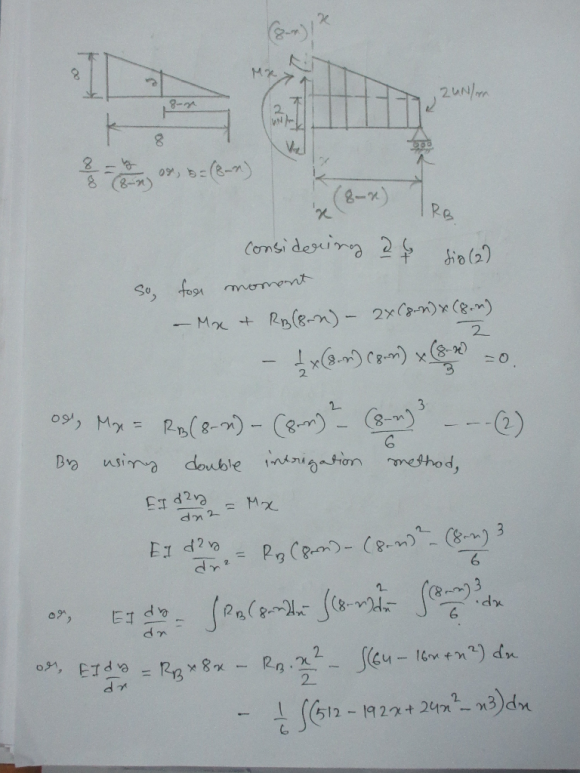 x
(8-x)
Mx
8
y
8-x
8
2kN/m
2
kN/m
Vx
x
(8-x)
RB
8/8 = y/(8-x) or, y = (8-x)
considering fig(2)
so, for moment
- Mx + RB(8-x) - 2×(8-x)×(8-x)/2
- 1/2 ×(8-x)(8-x) × (8-x)/3 = 0.
or, Mx = RB(8-x) - (8-x)² - (8-x)³/6 - - - - (2)
By using double intrigation method,
EI d²y/dx² = Mx
EI d²y/dx² = RB(8-x) - (8-x)² - (8-x)³/6
or, EI dy/dx = ∫RB(8-x)dx - ∫(8-x)²dx - ∫(8-x)³/6 .dx
or, EI dy/dx = RB×8x - RB.x²/2 - ∫(64 - 16x + x²) dx
- 1/6 ∫(512 - 192x + 24x² - x3) dx